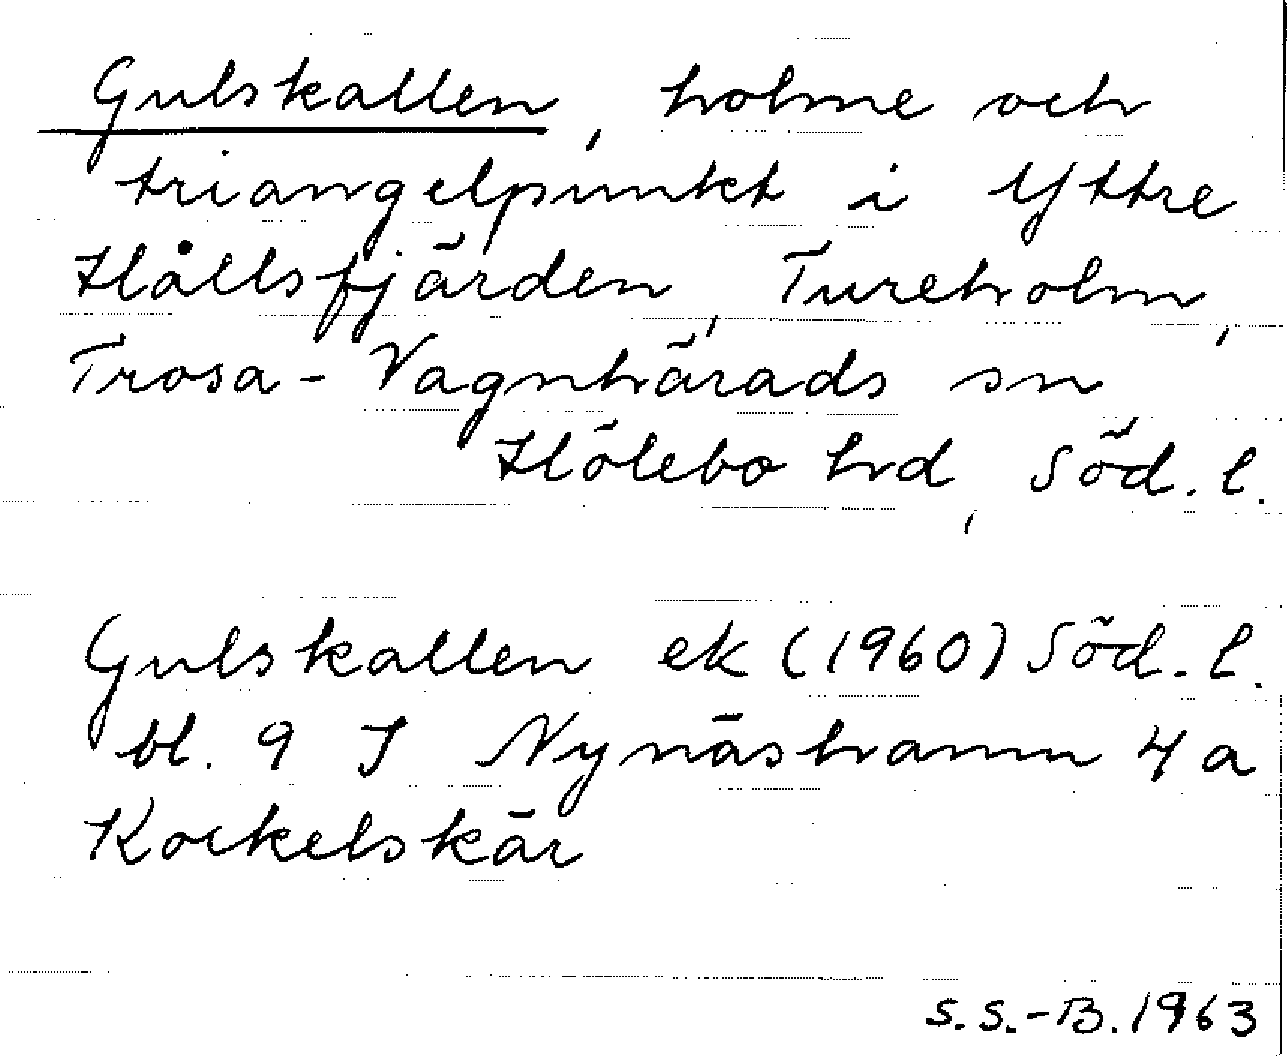 Gulskallen, holme och
triangelpunkt i Yttre
Hållsfjärden, Tureholm,
Trosa-Vagnhärads sn
Hölebo hrd, Söd. l.
Gulskallen ek (1960) Söd. l.
bl. 9 I Nynäshamn 4 a
Kockelskär
S.S.-B. 1963